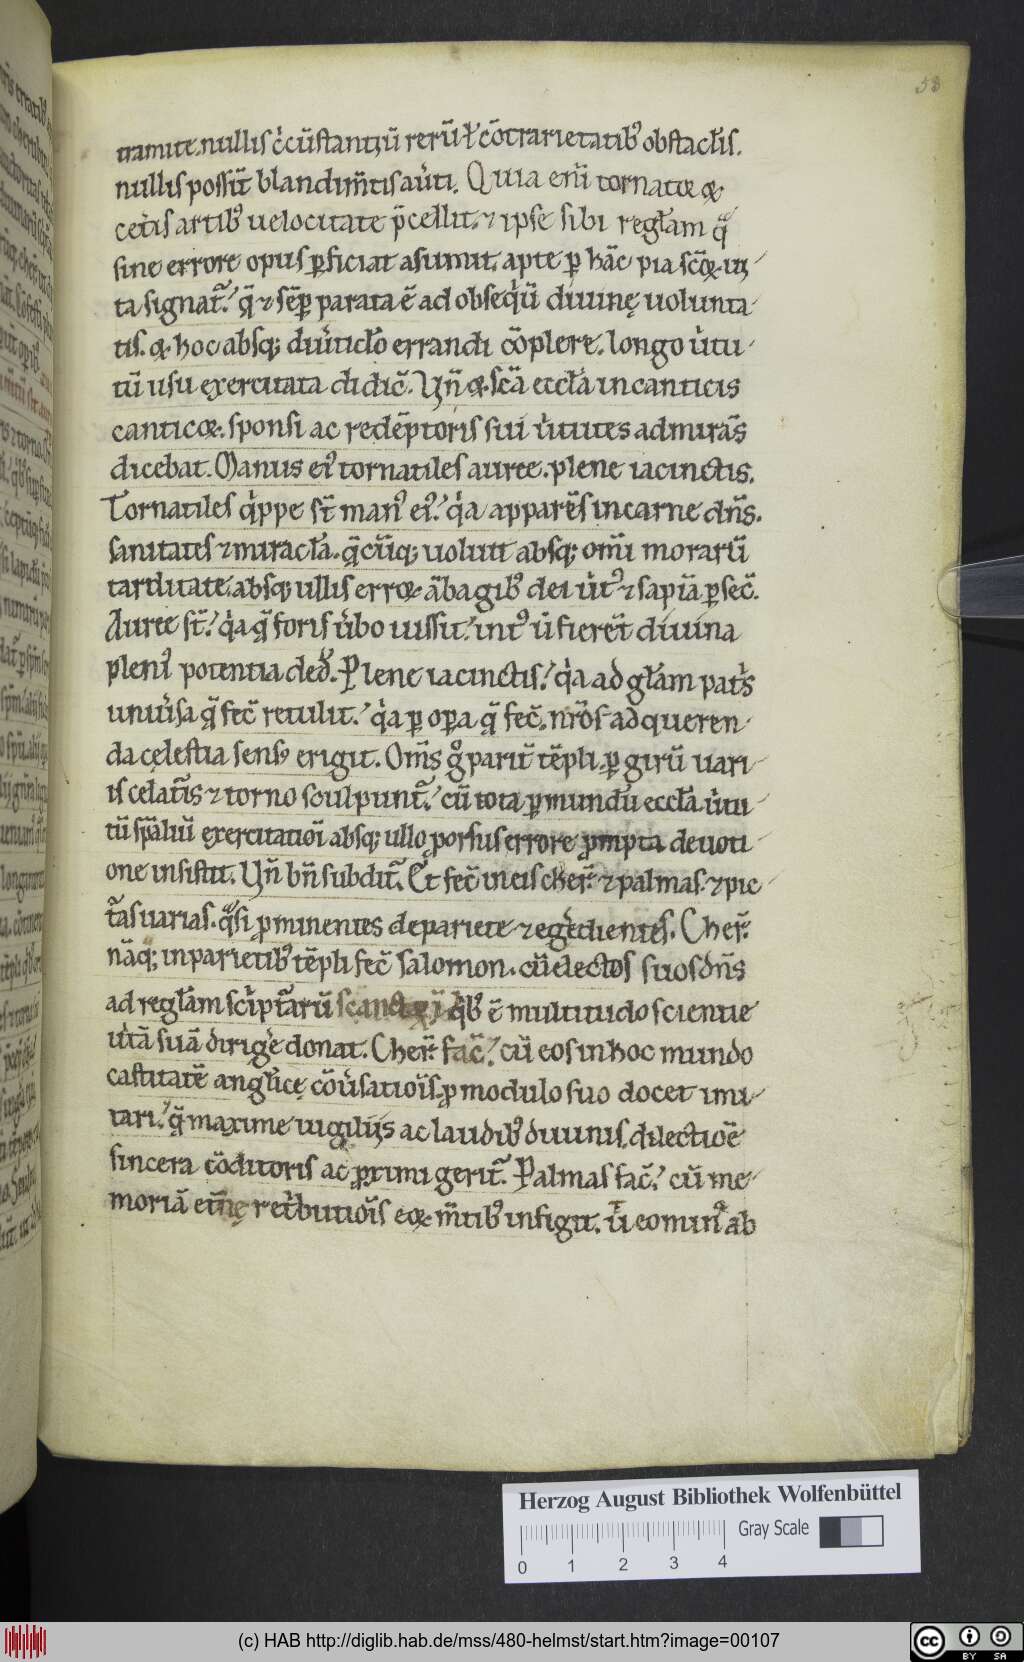 53
tramite. nullis c̓cūstantıū rerū ł cōtrarietatib; obstacłis.
nullis possit̄ blandim̄tis au̓ti. Quia eni̅ tornatoꝝ
cet̓is artib; uelocitate p̄cellit. ⁊ ipse sibi regłam q̄
sine errore opus ꝑficiat asumit. apte ꝑ hāc pia scōꝝ ui-
ta signat̄. q̄ ⁊ sēꝑ parata ē ad obseq̓ū diuinę uolunta-
tis. ꝙ hoc absq; diu̓ticło errandi cōplere. longo u̓tu-
tū usu exercitata didic̄. Uñ ꝙ scā eccła in canticis
canticoꝝ. sponsi ac redēptoris sui u̓tutes admirās
dicebat. Manus ei᾽ tornatiles auree. plene iacinctis.
Tornatiles q̓ppe st̄ man᾽ ei᾽. q̓a apparēs in carne dn̄s.
sanitates ⁊ miracła. q̄cūq; uoluit absq; om̄i morarū
tarditate. absq; ullis erroꝝ ābagib; dei u̓t᾽ ⁊ sapiā ꝑfec̄.
Auree st̄. q̓a q̄ foris u̓bo iussit. int᾽ ū fieret̄ diuina
pleni᾽ potentia ded̓. Plene iacinctis. q̓a ad głam pat̓s
uniu̓sa q̄ fec̄ retulit. q̓a ꝑ oꝑa q̄ fec̄. nr̄os ad queren-
da cęlestia sens᾽ erigit. Om̄s g̊ pariet̄ tēpli ꝑ girū uari-
is celat̄is ⁊ torno sculpunt̄. cū tota ꝑ mundū eccła u̓tu-
tū sp̄aliū exercitatiōi absq; ullo ꝓrsus errore ꝓmpta deuoti-
one insistit. Uñ bn̄ subdit̄. Et fec̄ in eis cher̄. ⁊ palmas. ⁊ pic-
t̄as uarias. q̓si ꝓminentes de pariete ⁊ egr̓edientes. Cher̄.
nāq; in parietib; tēpli fec̄ salomon. cū electos suos dn̄s
ad regłam sc̓ipt̄arū q̓b; ē multitudo scientie
u̓tā suā dirig̓e donat. Cher̄. fac̄. cū eos in hoc mundo
castitatē angłicę cōu̓satiōis ꝓ modulo suo docet imi-
tari. q̄ maxime uigilijs ac laudib; diuinis. dilectioē
sincera cōditoris ac ꝓximi gerit̄. Palmas fac̄. cū me-
moriā et̄nę ret̓butiōis eoꝝ m̄tib; infigit. ut̄ eo min᾽ ab
Herzog August Bibliothek Wolfenbüttel
Gray Scale
0 1 2 3 4
(c) HAB http://diglib.hab.de/mss/480-helmst/start.htm?image=00107
cc BY SA